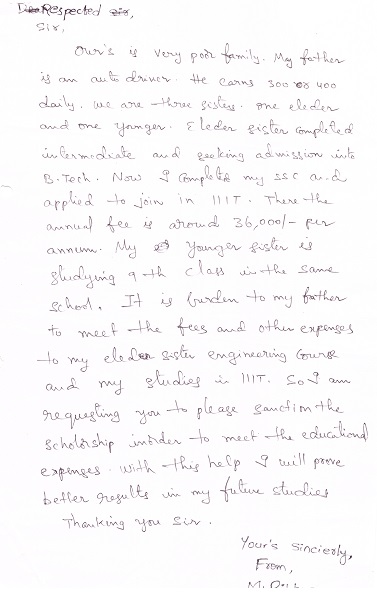 Respected sir,
Sir,
Our's is very poor family. My father
is an auto driver. He earns 300 or 400
daily. We are three sisters. one eleder
and one younger. Eleder sister completed
intermediate and seeking admission into
B.Tech. Now I completed my SSC and
applied to join in IIIT. There the
annual fee is around 36,000/- per
annum. My younger sister is
studying 9th class in the same
school. It is burden to my father
to meet the fees and other expenses
to my eleder sister engineering course
and my studies in IIIT. So I am
requesting you to please sanction the
scholorship inorder to meet the educational
expenses. with this help I will prove
better results in my future studies
Thanking you Sir.
Your's Sincierly,
From,